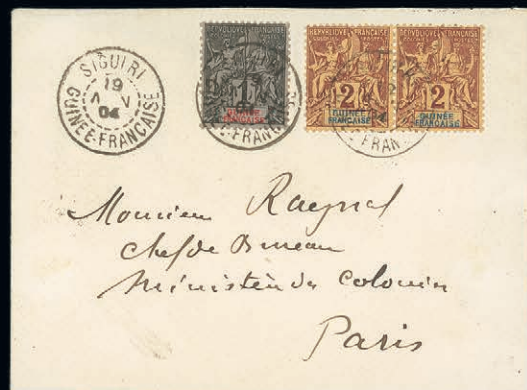 SIGUIRI
19
NOV
04
GUINÉE-FRANÇAISE
REPUBLIQUE FRANÇAISE
1
REPUBLIQUE FRANÇAISE
2
GUINÉE
FRANÇAISE
REPUBLIQUE FRANÇAISE
2
GUINÉE
FRANÇAISE
Monsieur Raynal
Chef de Bureau
Ministère des Colonies
Paris